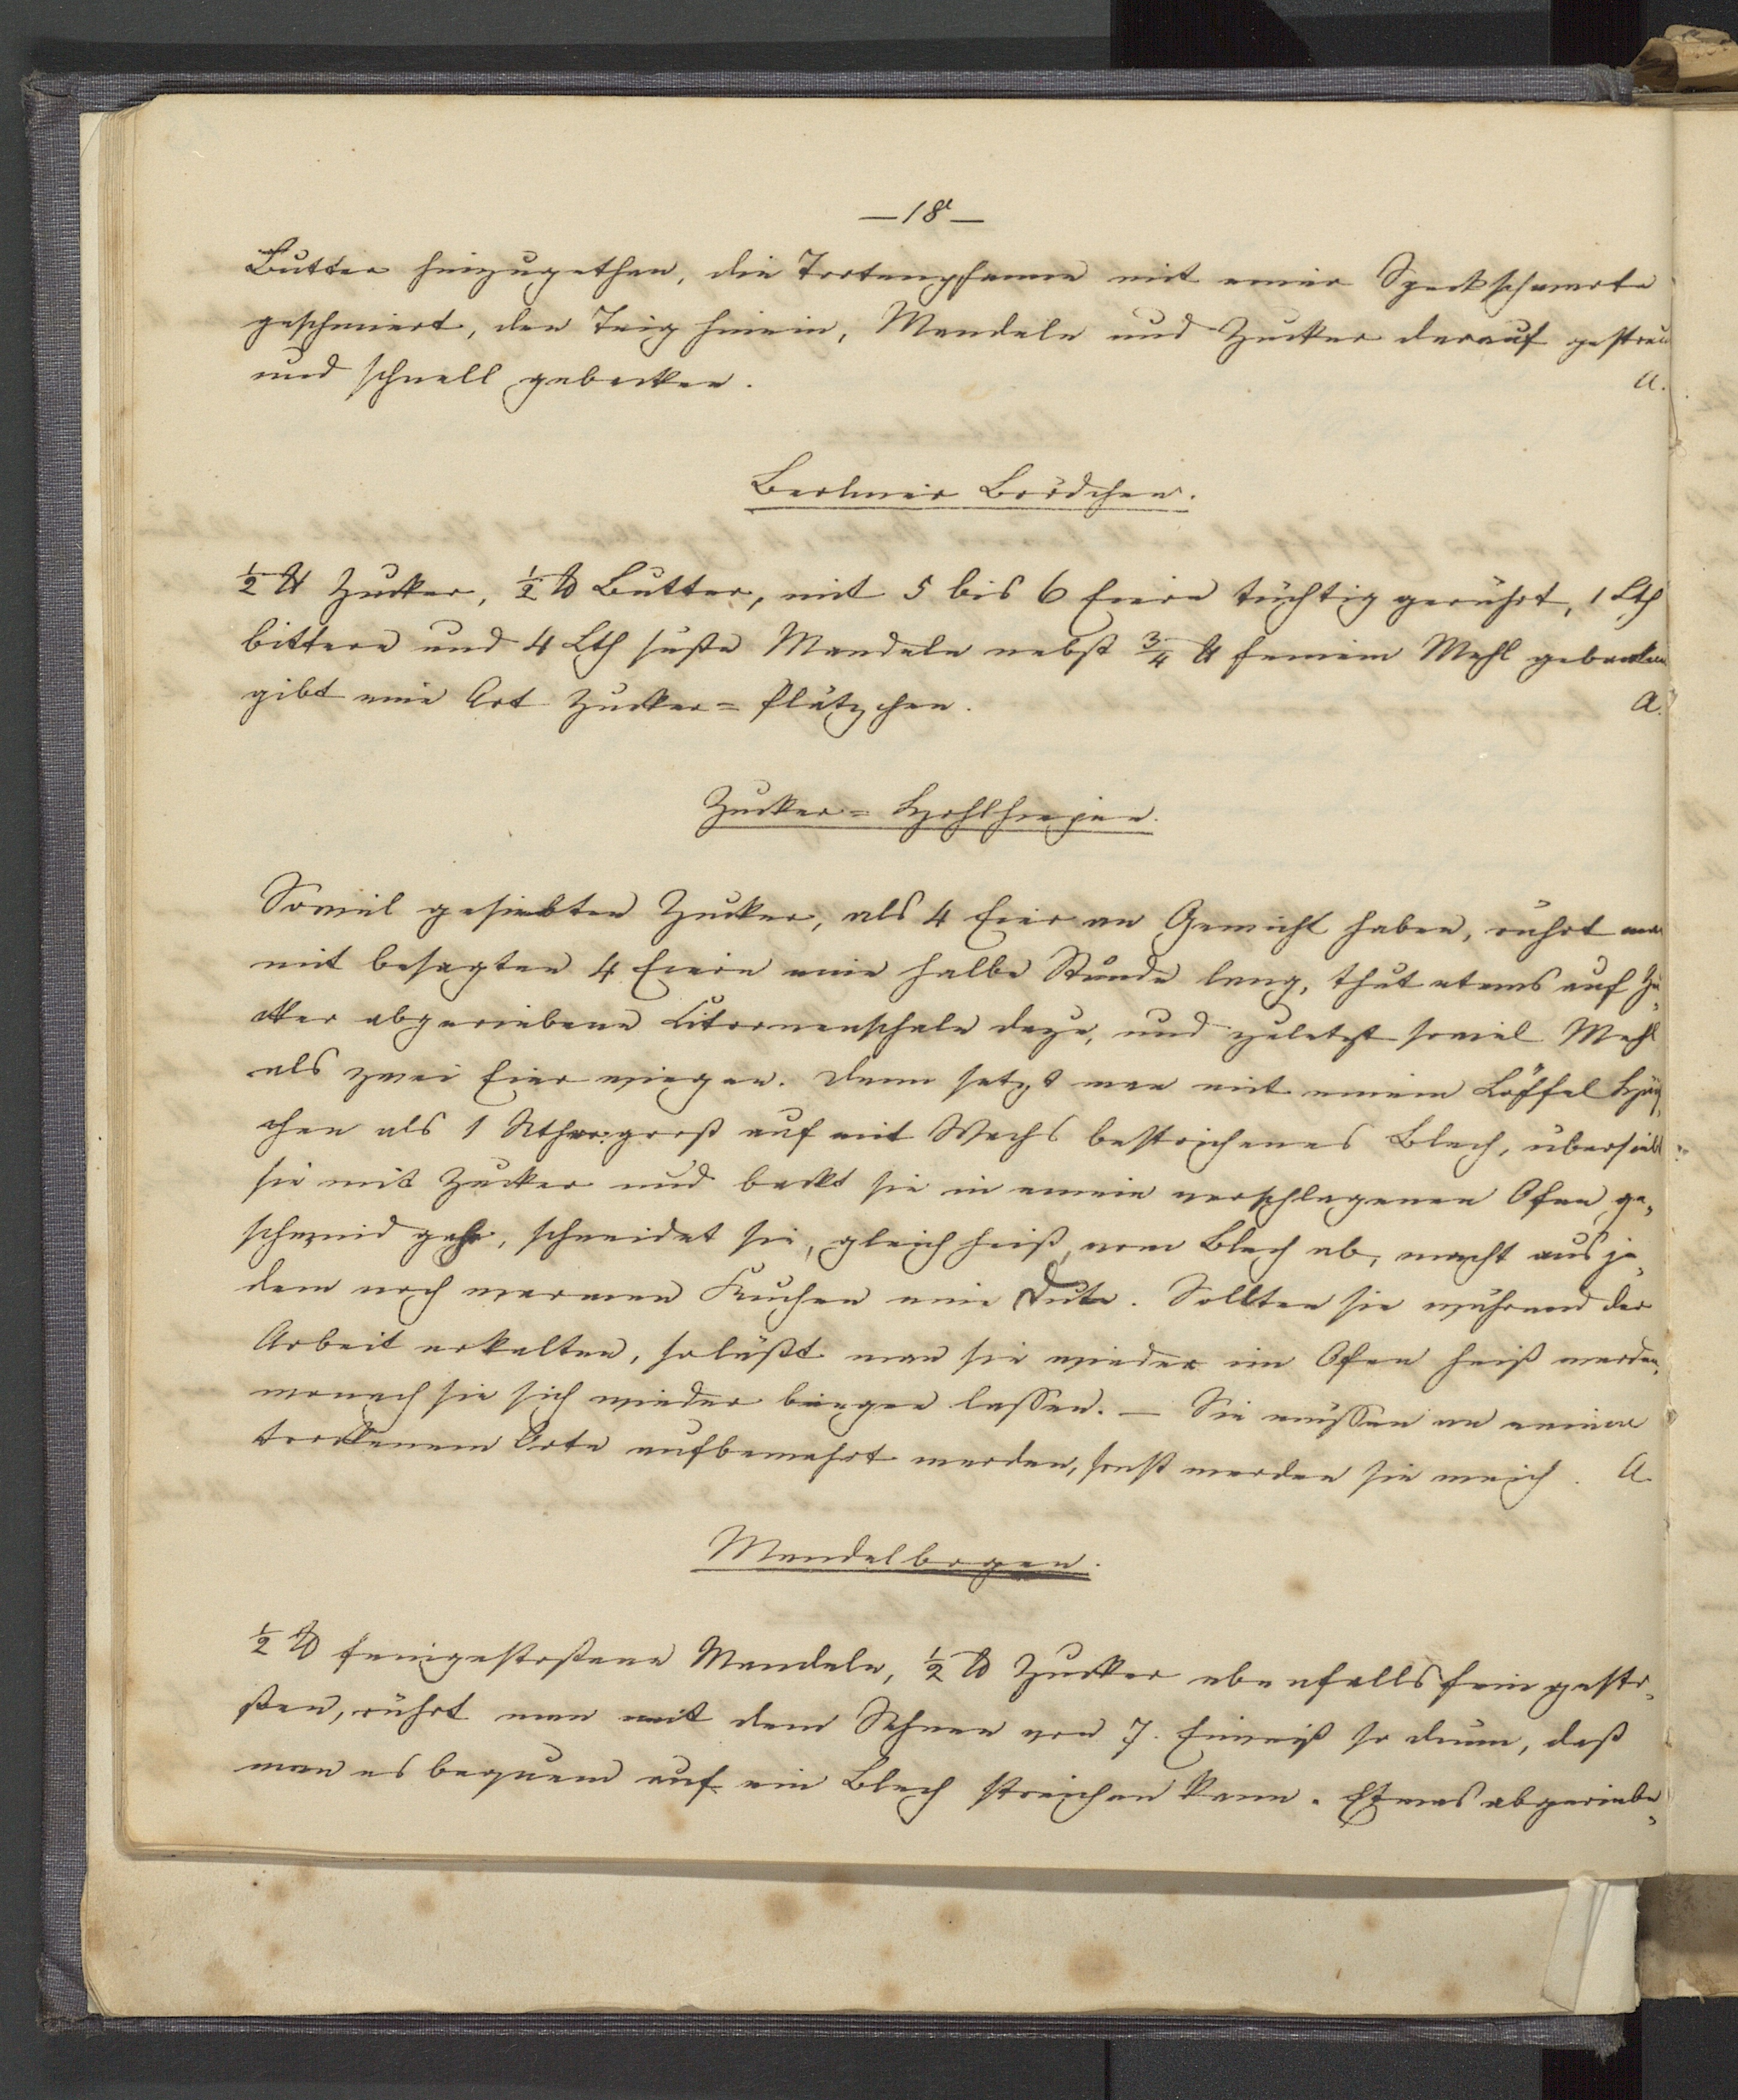 — 18 —
Butter hinzugethan, die Tortenpfanne mit einer Speckschwarte
geschmiert, den Teig hinein, Mandeln und Zucker darauf gestreu
und schnell gebacken. A.
Berliner Brödchen.
½ ℔ Zucker, ½ ℔ Butter, mit 5 bis 6 Eiern tüchtig gerührt, 1 Lth
bittere und 4 Lth süße Mandeln nebst ¾ ℔ feinem Mehl gebacken
gibt eine Art Zucker=Plätzchen. A.
Zucker=Hohlhippen.
Soviel gesiebten Zucker, als 4 Eier an Gewicht haben, rührt man
mit besagten 4 Eiern eine halbe Stunde lang, thut etwas auf Zu-
cker abgeriebene Citronenschale dazu, und zuletzt soviel Mehl
als zwei Eier wiegen. Dann setzt man mit einem Löffel
chen als 1 groß auf mit Wachs bestrichenes Blech, übersiebt
sie mit Zucker und backt sie in einem verschlagenen Ofen ge-
schwind gahr, schneidet sie, gleich heiß, vom Blech ab, macht aus je-
dem noch warmen Kuchen eine Dute. Sollten sie während der
Arbeit erkalten, so läßt man sie wieder im Ofen heiß werden,
wonach sie sich wieder biegen lassen. — Sie müssen an einem
trockenem Orte aufbewahrt werden, sonst werden sie weich. A.
Mandelbogen.
½ ℔ feingestoßene Mandeln, ½ ℔ Zucker ebenfalls fein gesto-
ßen, rührt man mit dem Schnee von 7. Eiweiß so dünn, daß
man es bequem auf ein Blech streichen kann. Etwas abgeriebe-